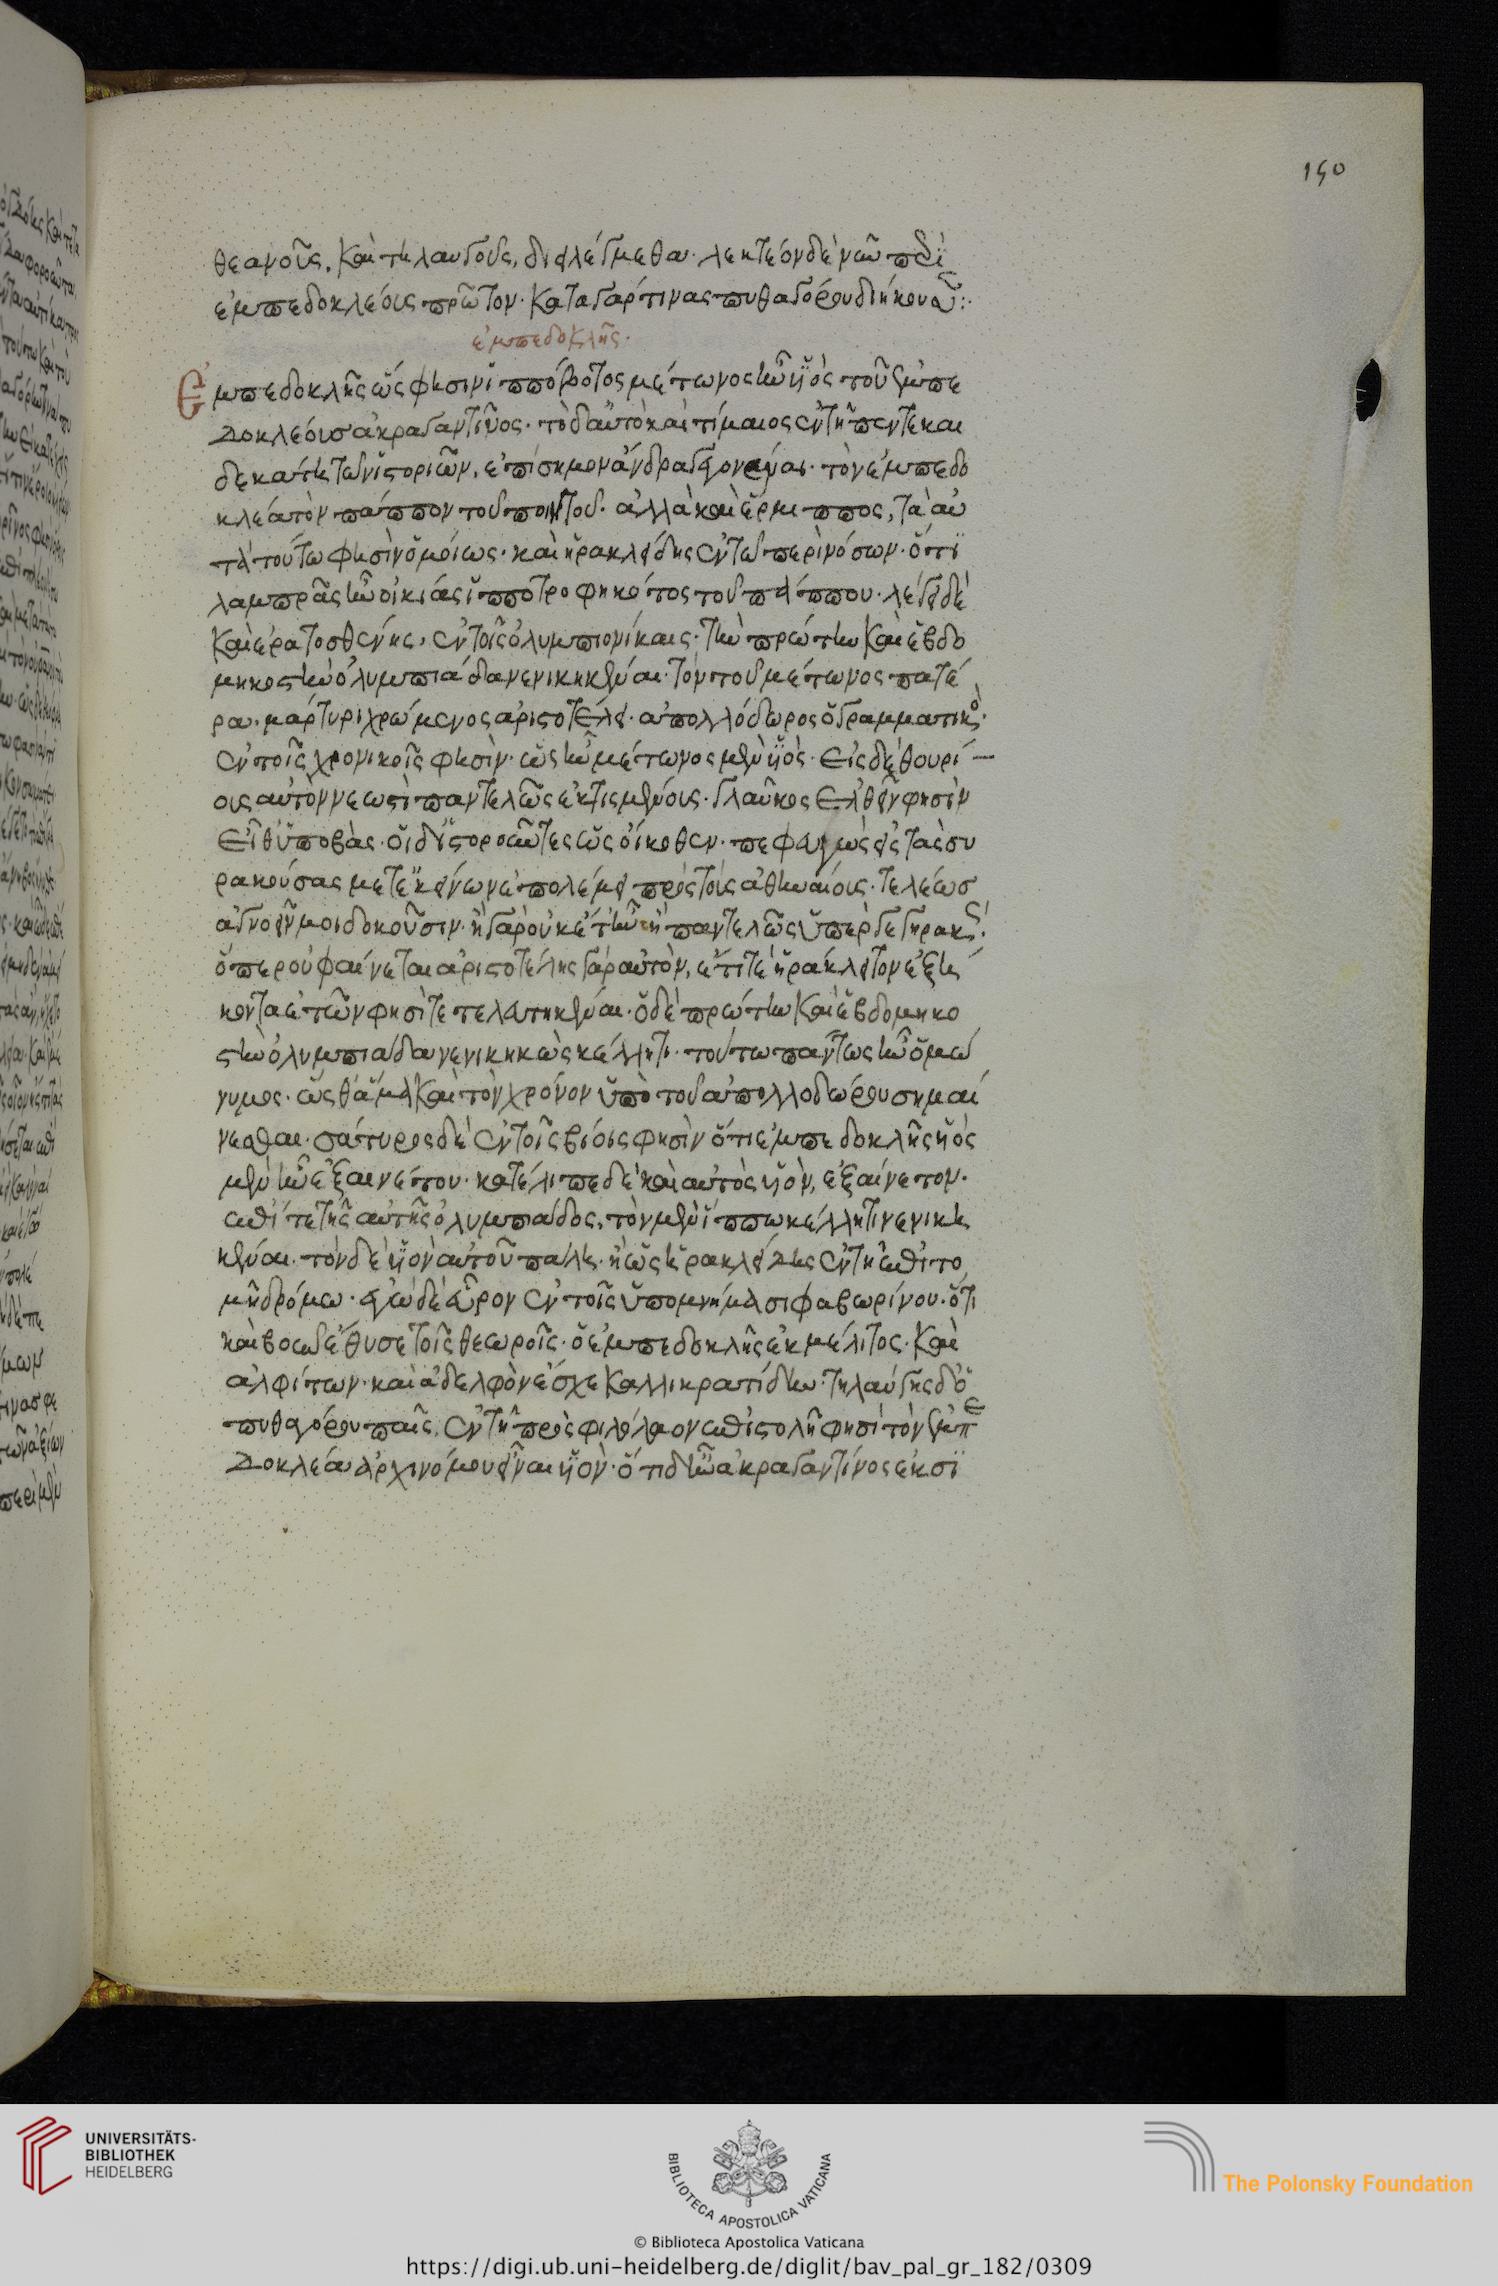 150
θεανοῦς, καὶ τηλαυγοῦς, διειλέγμεθα· λεκτέον δὲ νῦν περὶ
ἐμπεδοκλέους πρῶτον· κατα γάρ τινας πυθαγόρου διήκουσ:·
ἐμπεδοκλῆς·
Ἐμπεδοκλῆς ὥς φησιν ἱππόβοτος μέτωνος ἦν ϋἱὸς τοῦ ἐμπε
δοκλέους ἀκραγαντῖνος· τὸ δαὐτὸ καὶ τίμαιος ἐν τῆ πεντεκαι
δεκάτη τῶν ἱστοριῶν, ἐπίσημον ἄνδρα γεγονέναι· τὸν ἐμπεδο
κλέα τὸν πάππον τοῦ ποιητοῦ· ἀλλὰ καὶ ἕρμιππος, τὰ αὐ
τὰ τούτω φησὶν ὁμοίως· καὶ ἡρακλείδης ἐν τῶ περὶ νόσων· ὅτι
λαμπρᾶς ἦν οἰκίας ἱπποτροφηκότος τοῦ πάππου· λέγει δὲ
καὶ ἐρατοσθένης, ἐν τοῖς ὀλυμπιονίκαις· τὴν πρώτην καὶ ἑβδο
μηκοστὴν ὀλυμπιάδα νενικηκέναι· τὸν τοῦ μέτωνος πατέ
ρα· μάρτυρι χρώμενος ἀριστοτέλει· ἀπολλόδωρος ὁ γραμματικὸς·
ἐν τοῖς χρονικοῖς φησὶν· ὡς ἦν μέτωνος μὲν ϋἱὸς· εἰς δὲ θουρί
ους αὐτὸν νεωστὶ παντελῶς ἐκτισμένους· γλαῦκος ἐλθεῖν φησὶν
εἶθ ὑποβὰς· οἱ δ ἱστοροῦντες ὡς οἴκοθεν· πεφευγὼς εἰς τὰς συ
ρακούσας μετ ἐκείνων ἐπολέμει πρὸς τοὺς ἀθηναίους· τελέως
ἀγνοεῖν μοι δοκοῦσιν· ἢ γὰρ οὐκέτ ἦν ἢ παντελῶς ὑπὲρ γεγηρακὼς·
ὅπερ οὐ φαίνεται ἀριστοτέλης γὰρ αὐτὸν, ἔτι τὲ ἡράκλειτον ἑξή
κοντα ἐτῶν φησὶ τετελευτηκέναι· ὁ δὲ πρώτην καὶ ἑβδομηκο
στὴν ὀλυμπιάδα νενικηκὼς κέλητι· τούτω πάντως ἦν ὁμώ
νυμος· ὥς θ ἅμα καὶ τὸν χρόνον ὑπὸ τοῦ ἀπολλοδώρου σημαί
νεσθαι· σάτυρος δὲ ἐν τοῖς βίοις φησὶν ὅτι ἐμπεδοκλῆς ϋἱὸς
μὲν ἦν ἐξαινέτου· κατέλιπε δὲ καὶ αὐτὸς ϋἱὸν, ἐξαίνετον·
ἐπί τε τῆς αὐτῆς ὀλυμπιάδος, τὸν μὲν ἵππω κέλητι νενικη
κέναι· τὸν δὲ ϋἱὸν αὐτοῦ πάλη· ἢ ὡς ἡρακλείδης ἐν τῆ ἐπιτο
μῆ δρόμω· ἐγὼ δὲ εὗρον ἐν τοῖς ὑπομνήμασι φαβωρίνου· ὅτι
καὶ βοῦν ἔθυσε τοῖς θεωροῖς· ὁ ἐμπεδοκλῆς ἐκ μέλιτος· καὶ
ἀλφίτων· καὶ ἀδελφὸν ἔσχε καλλικρατίδην· τηλαύγης δ ὁ
πυθαγόρου παῖς, ἐν τῆ πρὸς φιλόλαον ἐπιστολῆ φησὶ τὸν ἐμπε
δοκλέα ἀρχινόμου εἶναι ϋἱὸν· ὅτι δ ἦν ἀκραγαντίνος ἐκ σι
UNIVERSITÄTS-
BIBLIOTHEK
HEIDELBERG
BIBLIOTECA APOSTOLICA VATICANA
© Biblioteca Apostolica Vaticana
The Polonsky Foundation
https://digi.ub.uni-heidelberg.de/diglit/bav_pal_gr_182/0309